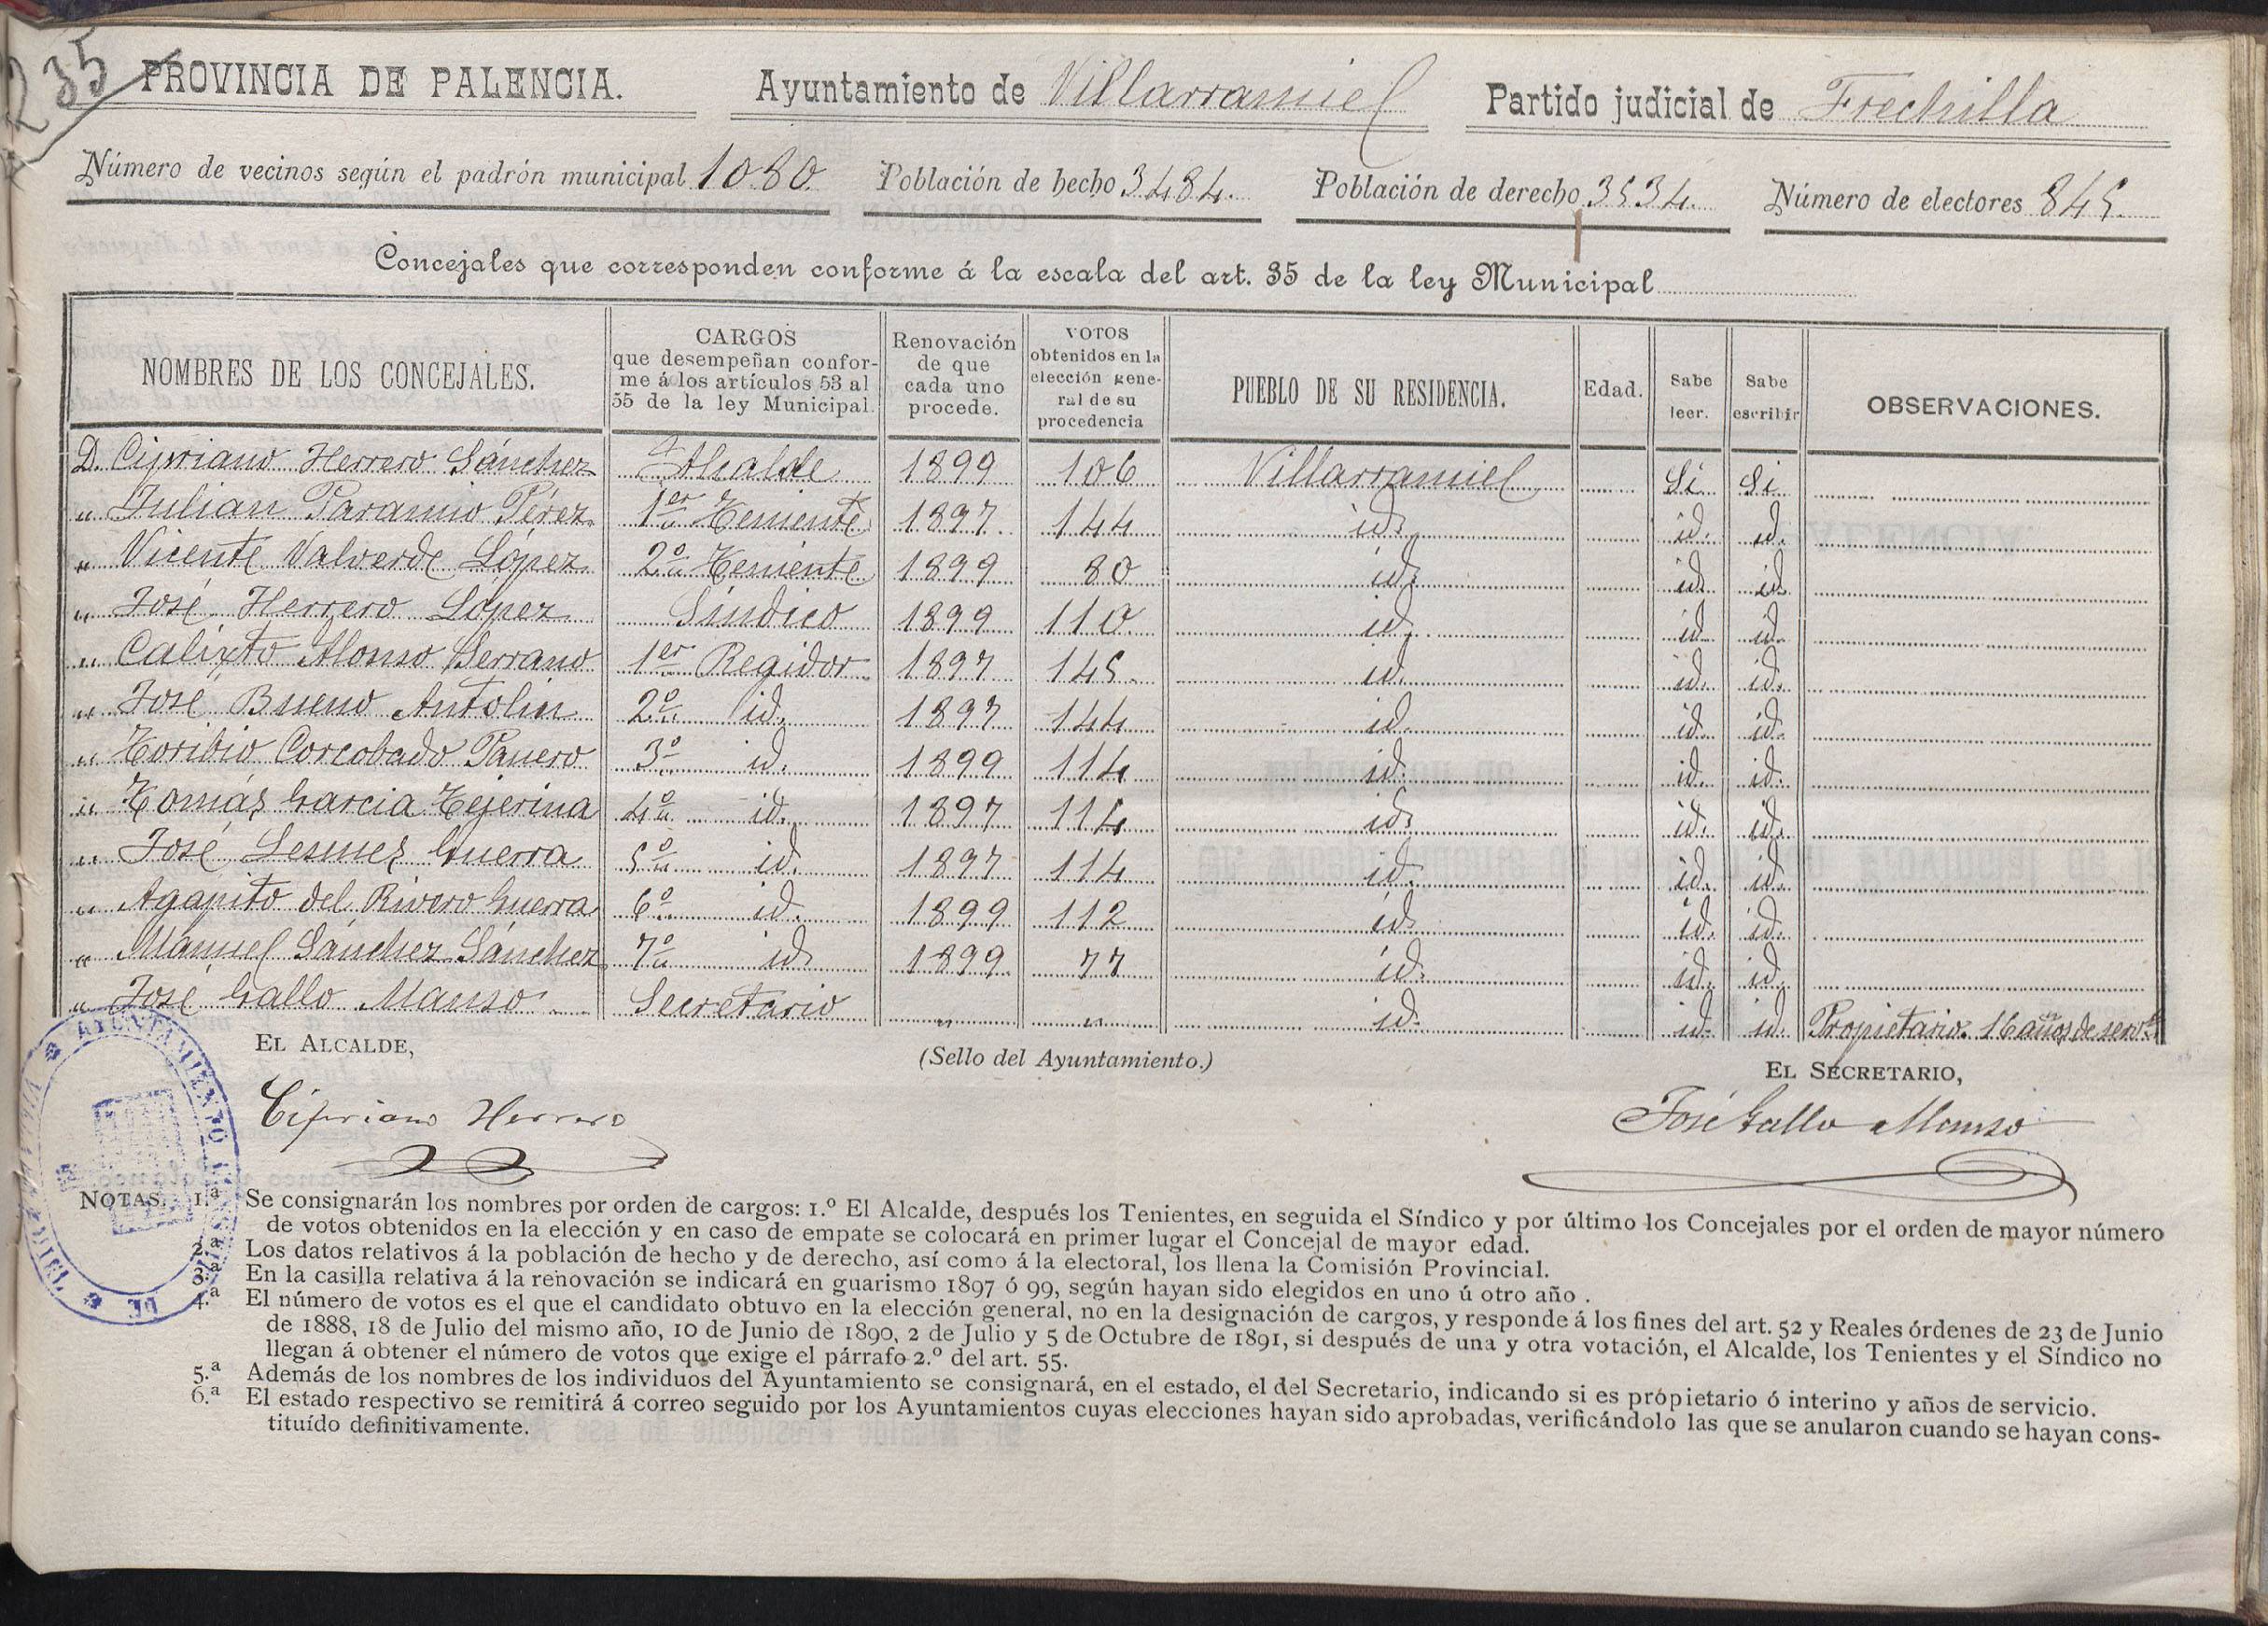 235
PROVINCIA DE PALENCIA. Ayuntamiento de Villarramiel Partido judicial de Frechilla
Número de vecinos según el padrón municipal 1080. Población de hecho 3484. Población de derecho 3534. Número de electores 845.
Concejales que corresponden conforme á la escala del art. 35 de la ley Municipal
NOMBRES DE LOS CONCEJALES. CARGOS que desempeñan conforme á los artículos 53 al 55 de la ley Municipal. Renovación de que cada uno procede. VOTOS obtenidos en la elección general de su procedencia PUEBLO DE SU RESIDENCIA. Edad. Sabe leer. Sabe escribir OBSERVACIONES.
D. Cipriano Herrero Sánchez Alcalde 1899 106 Villarramiel Si Si
" Julian Paramio Pérez 1er Teniente 1897 144 id. id. id.
" Vicente Valverde López 2º Teniente 1899 80 id. id. id.
" José Herrero López Síndico 1899 110 id. id. id.
" Calixto Alonso Serrano 1er Regidor 1897 145 id. id. id.
" José Bueno Antolin 2º id. 1897 144 id. id. id.
" Toribio Corcobado Panero 3º id. 1899 114 id. id. id.
" Tomás Garcia Tejerina 4º id. 1897 114 id. id. id.
" José Lesmes Guerra 5º id. 1897 114 id. id. id.
" Agapito del Rivero Guerra 6º id. 1899 112 id. id. id.
" Manuel Sánchez Sánchez 7º id. 1899 77 id. id. id.
" José Gallo Manso Secretario " " id. id. id. Propietario. 16 años de servº
EL ALCALDE, (Sello del Ayuntamiento.) EL SECRETARIO,
Cipriano Herrero José Gallo Manso
AYUNTAMIENTO CONSTITUCIONAL DE VILLARRAMIEL
NOTAS. 1.ª Se consignarán los nombres por orden de cargos: 1.º El Alcalde, después los Tenientes, en seguida el Síndico y por último los Concejales por el orden de mayor número
de votos obtenidos en la elección y en caso de empate se colocará en primer lugar el Concejal de mayor edad.
2.ª Los datos relativos á la población de hecho y de derecho, así como á la electoral, los llena la Comisión Provincial.
3.ª En la casilla relativa á la renovación se indicará en guarismo 1897 ó 99, según hayan sido elegidos en uno ú otro año .
4.ª El número de votos es el que el candidato obtuvo en la elección general, no en la designación de cargos, y responde á los fines del art. 52 y Reales órdenes de 23 de Junio
de 1888, 18 de Julio del mismo año, 10 de Junio de 1890, 2 de Julio y 5 de Octubre de 1891, si después de una y otra votación, el Alcalde, los Tenientes y el Síndico no
llegan á obtener el número de votos que exige el párrafo 2.º del art. 55.
5.ª Además de los nombres de los individuos del Ayuntamiento se consignará, en el estado, el del Secretario, indicando si es própietario ó interino y años de servicio.
6.ª El estado respectivo se remitirá á correo seguido por los Ayuntamientos cuyas elecciones hayan sido aprobadas, verificándolo las que se anularon cuando se hayan cons-
tituído definitivamente.